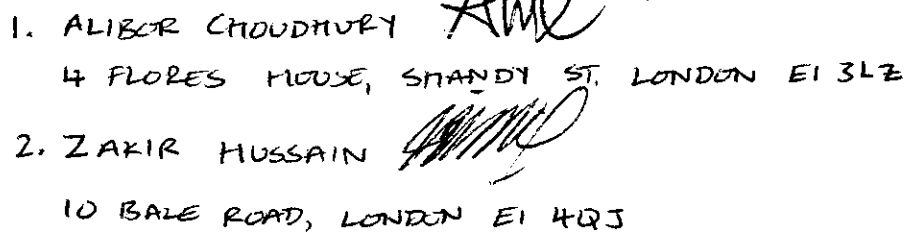 1. ALIBOR CHOUDHURY
4 FLORES HOUSE, SHANDY ST. LONDON E1 3LZ
2. ZAKIR HUSSAIN
10 BALE ROAD, LONDON E1 4QJ